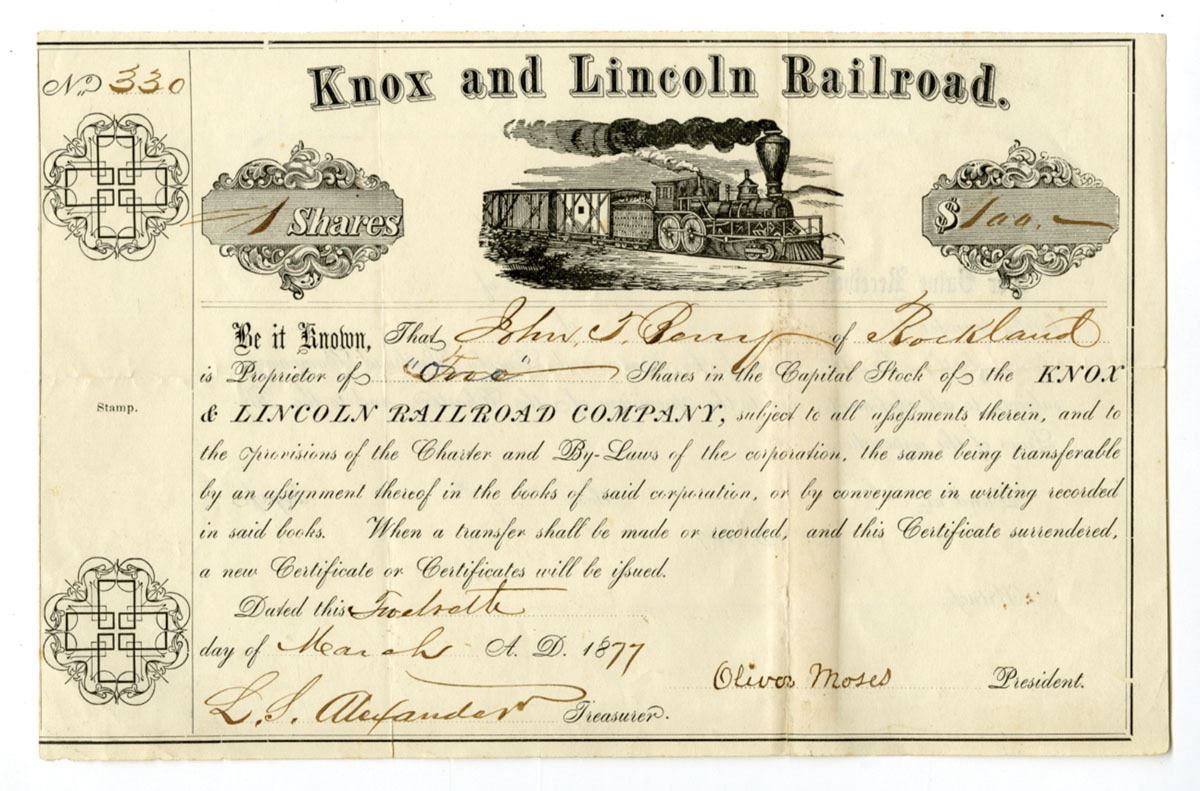 No 330
Knox and Lincoln Railroad.
1 Shares
$100.
Be it Known, That John T. Perry of Rockland
is Proprietor of Shares in the Capital Stock of the KNOX
Stamp.
& LINCOLN RAILROAD COMPANY, subject to all assessments therein, and to
the provisions of the Charter and By-Laws of the corporation, the same being transferable
by an assignment thereof in the books of said corporation, or by conveyance in writing recorded
in said books. When a transfer shall be made or recorded, and this Certificate surrendered,
a new Certificate or Certificates will be issued.
Dated this Twelveth
day of March A. D. 1877
Oliver Moses President.
L. S. Alexander Treasurer.